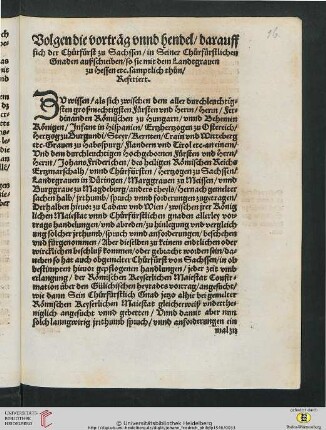 Volgen die vorträg vnnd hendel / darauff
sich der Chürfürst zu Sachssen / in Seiner Chürfürstlichen
Gnaden außschreiben / so sie mit dem Landtgrauen
zu Hessen etc. samptlich thun /
Referiert.
ZV wissen / als sich zwischen dem aller durchleuchtig-
sten großmechtigsten Fürsten vnd Herrn / Herrn / Fer-
dinanden Römischen zu Hungarn / vnnd Behemen
Königen / Infant in Hispanien / Ertzhertzogen zu Osterreich /
Hertzog zu Burgundi / Steyr / Kernten / Crain vnd Wirtēberg
etc. Grauen zu Habspurg / Flandern vnd Tirol etc. an einem /
Vnd dem durchleuchtigen Hochgebornen Fürsten vnd Herrn /
Herrn / Johans Friderichen / des heiligen Römischen Reichs
Ertzmarschalh / vnnd Chürfürsten / hertzogen zu Sachssen /
Landtgrauen in Düringen / Marggrauen zu Meissen / vnnd
Burggraue zu Magdeburg / anders theils / hernach gemelter
sachen halb / jrthumb / spruch vnnd forderungen zugetragen /
Derhalben hieuor zu Cadaw vnd Wien / zwischen jrer König
lichen Maiestat vnnd Chürfürstlichen gnaden allerley vor
trage handelungen / vnd abreden / zu hinlegung vnd vergleich
ung solcher jrthumb / spruch vnnd anforderungen / beschehen
vnd fürgenommen / Aber dieselben zu keinem endtlichen oder
wircklichen beschluß kommen / oder gebracht worden sein / da-
neben so hat auch obgemelter Chürfürst von Sachssen / in ob
bestimpten hieuor gepflogenen handlungen / jeder zeit vmb
erlangung / der Römischen Keyserlichen Maiestat Confir-
mation über den Gülichischen heyrates vortrag / angesucht /
wie dann Sein Chürfürstlich Gnad jetzo alhie bey gemelter
Römischen Keyserlichen Maiestat gleicherweiß vnderthe-
niglich angesucht vnnd gebetten / Vnd damit aber nun
solch langwirig jrthumb spruch / vnnd anforderungen ein
mal zu
UNIVERSITÄTS-
BIBLIOTHEK
HEIDELBERG
© Universitätsbibliothek Heidelberg